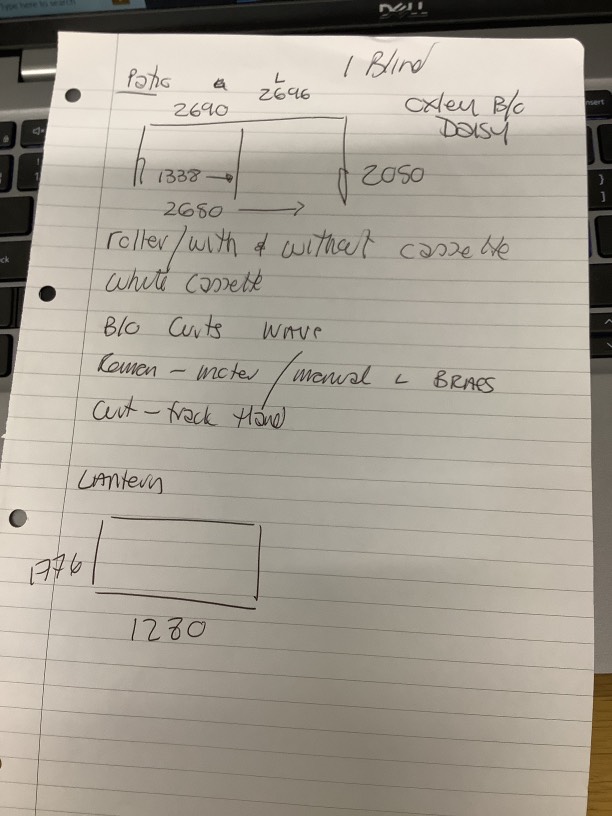 Type here to search
DELL
1 Blind
Patio a L
2696
2690
Oxley B/o
Daisy
1338
2050
2680
roller/with & without cassette
white cassette
B/o Curts WAVE
Roman - motor / manual L
Curt - track Hand
LANtern
1776
1280